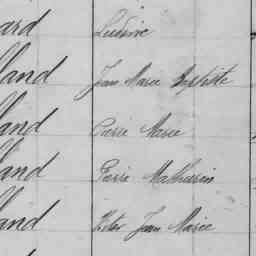 ard Ludivine
lland Jean Marie Baptiste
lland Pierre Marie
lland Pierre Mathurin
lland Victor Jean Marie